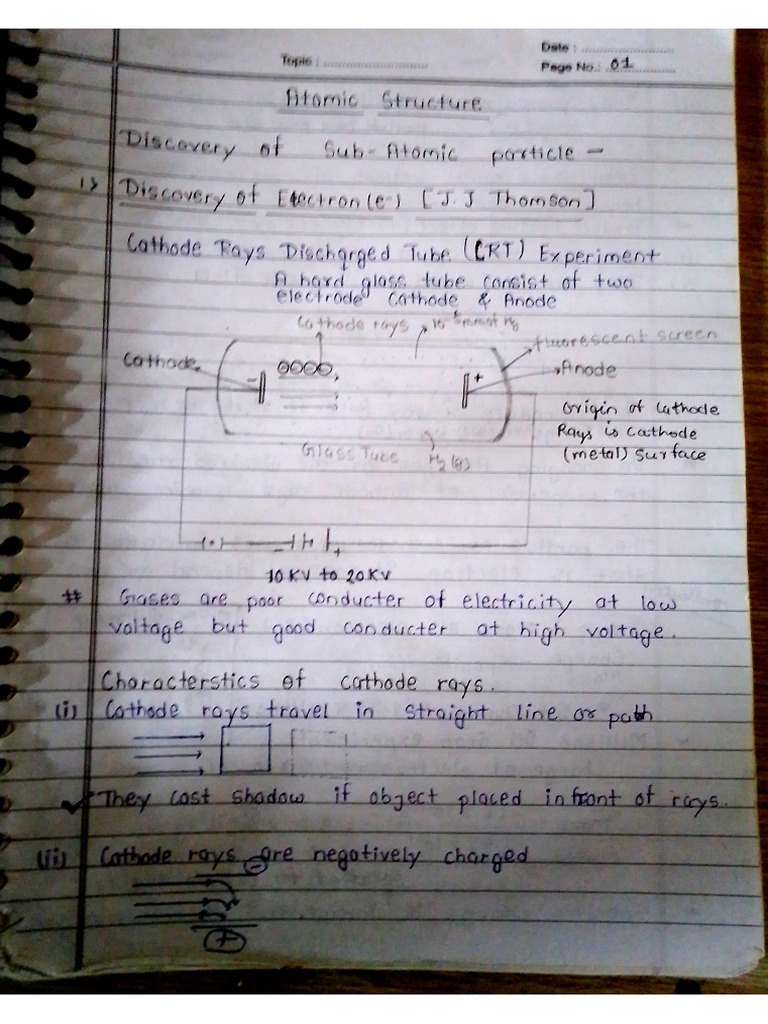 Date :
Topic :
Page No.: 01
Atomic Structure
Discovery of Sub-Atomic particle -
1> Discovery of Electron (e-) [J.J Thomson]
Cathode Rays Discharged Tube (CRT) Experiment
A hard glass tube consist of two
electrode Cathode & Anode
Cathode rays
fluorescent screen
Cathode
- +
Anode
origin of Cathode
Rays is Cathode
(metal) Surface
Glass Tube H2(g)
- +
10 KV to 20 KV
# Gases are poor conducter of electricity at low
voltage but good conducter at high voltage.
Characterstics of cathode rays.
(i) Cathode rays travel in straight line or path
✓ They cast shadow if object placed in front of rays.
(ii) Cathode rays are negatively charged
-
+